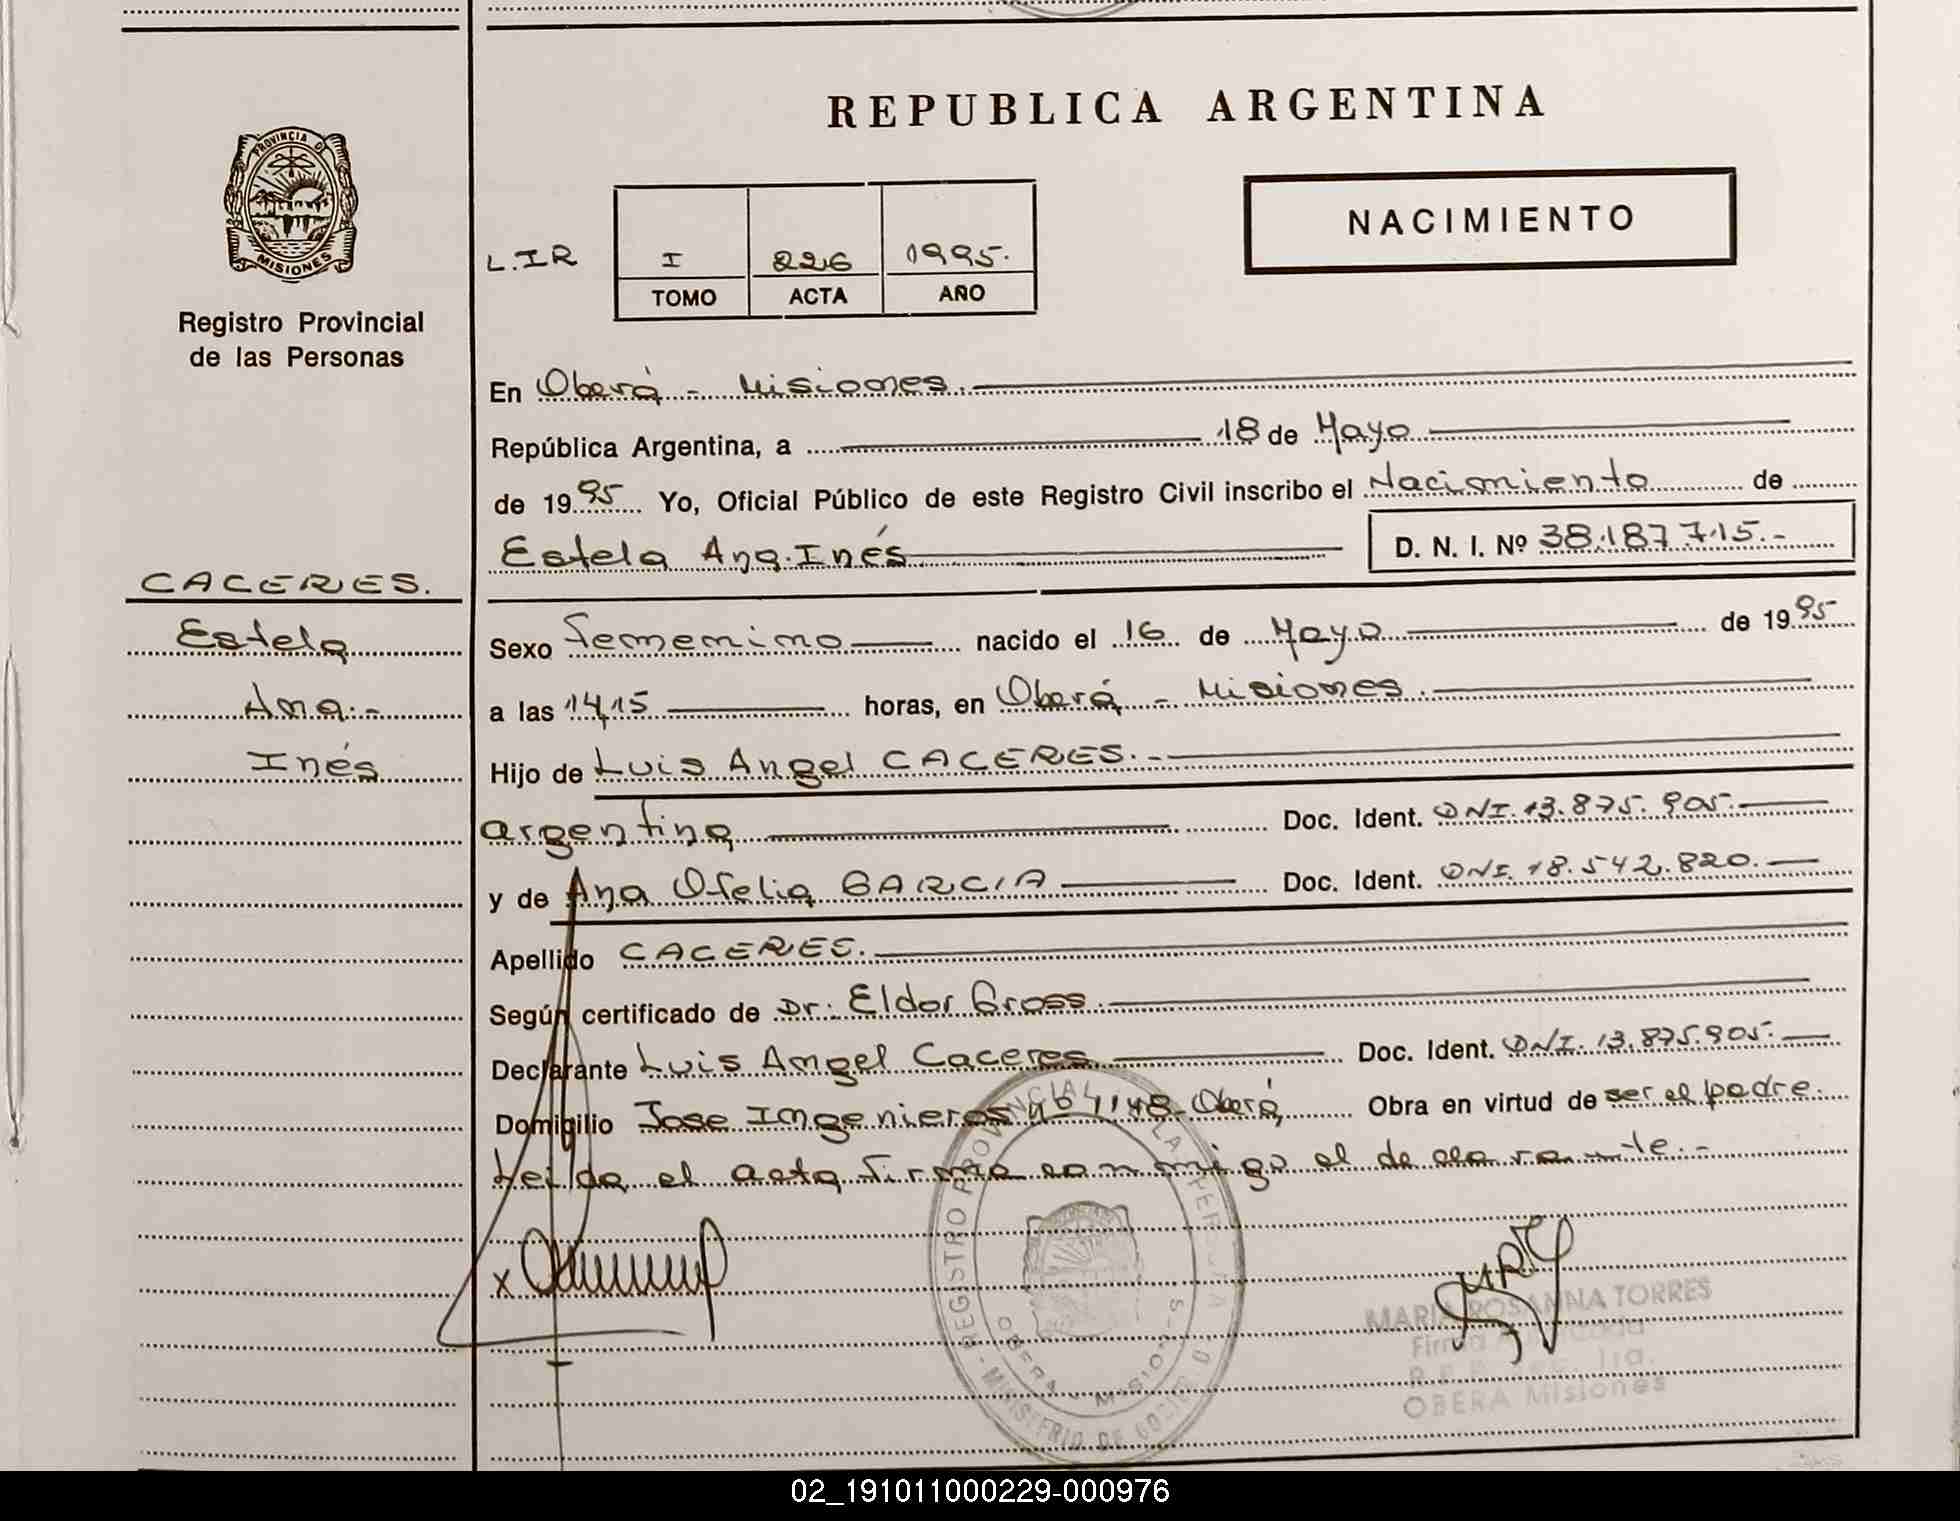 REPUBLICA ARGENTINA
PROVINCIA D
MISIONES
Registro Provincial
de las Personas
NACIMIENTO
L.I.R
I 226 1995.
TOMO ACTA AÑO
En Oberá - Misiones.
República Argentina, a 18 de Mayo
de 1995 Yo, Oficial Público de este Registro Civil inscribo el Nacimiento de
Estela Ana Inés D. N. I. Nº 38.187.715.-
CACERES.
Estela
Ana.-
Inés
Sexo femenino nacido el 16 de Mayo de 1995
a las 14,15 horas, en Oberá - Misiones.
Hijo de Luis Angel CACERES.-
argentina Doc. Ident. DNI. 13.875.905.
y de Ana Ofelia GARCIA Doc. Ident. DNI. 18.542.820.
Apellido CACERES.
Según certificado de Dr. Eldor Gross.
Declarante Luis Angel Caceres Doc. Ident. DNI. 13.875.905.
Domicilio Jose Ingenieros nº 1148-Oberá Obra en virtud de ser el padre.
Leida el acta firma conmigo el declarante.-
x
REGISTRO PROVINCIAL LA PERSONA
MINISTERIO DE GO
OBERA MISIONES
MARIA ROSANNA TORRES
OBERA Misiones
02_191011000229-000976